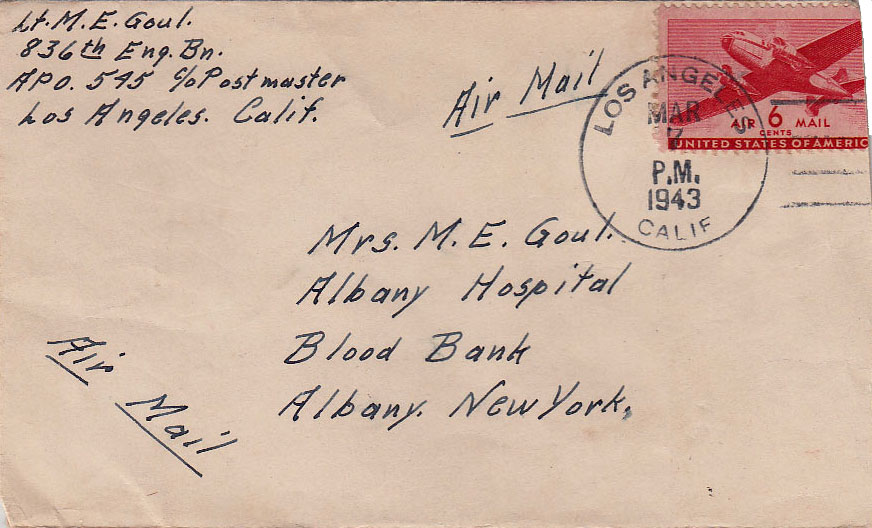 Lt. M. E. Goul.
836th Eng. Bn.
APO. 545 c/o Postmaster
Los Angeles. Calif.
Air Mail
LOS ANGELES
MAR
P.M.
1943
CALIF
AIR 6 MAIL
CENTS
UNITED STATES OF AMERIC
Mrs. M. E. Goul.
Albany Hospital
Blood Bank
Albany. New York.
Air Mail